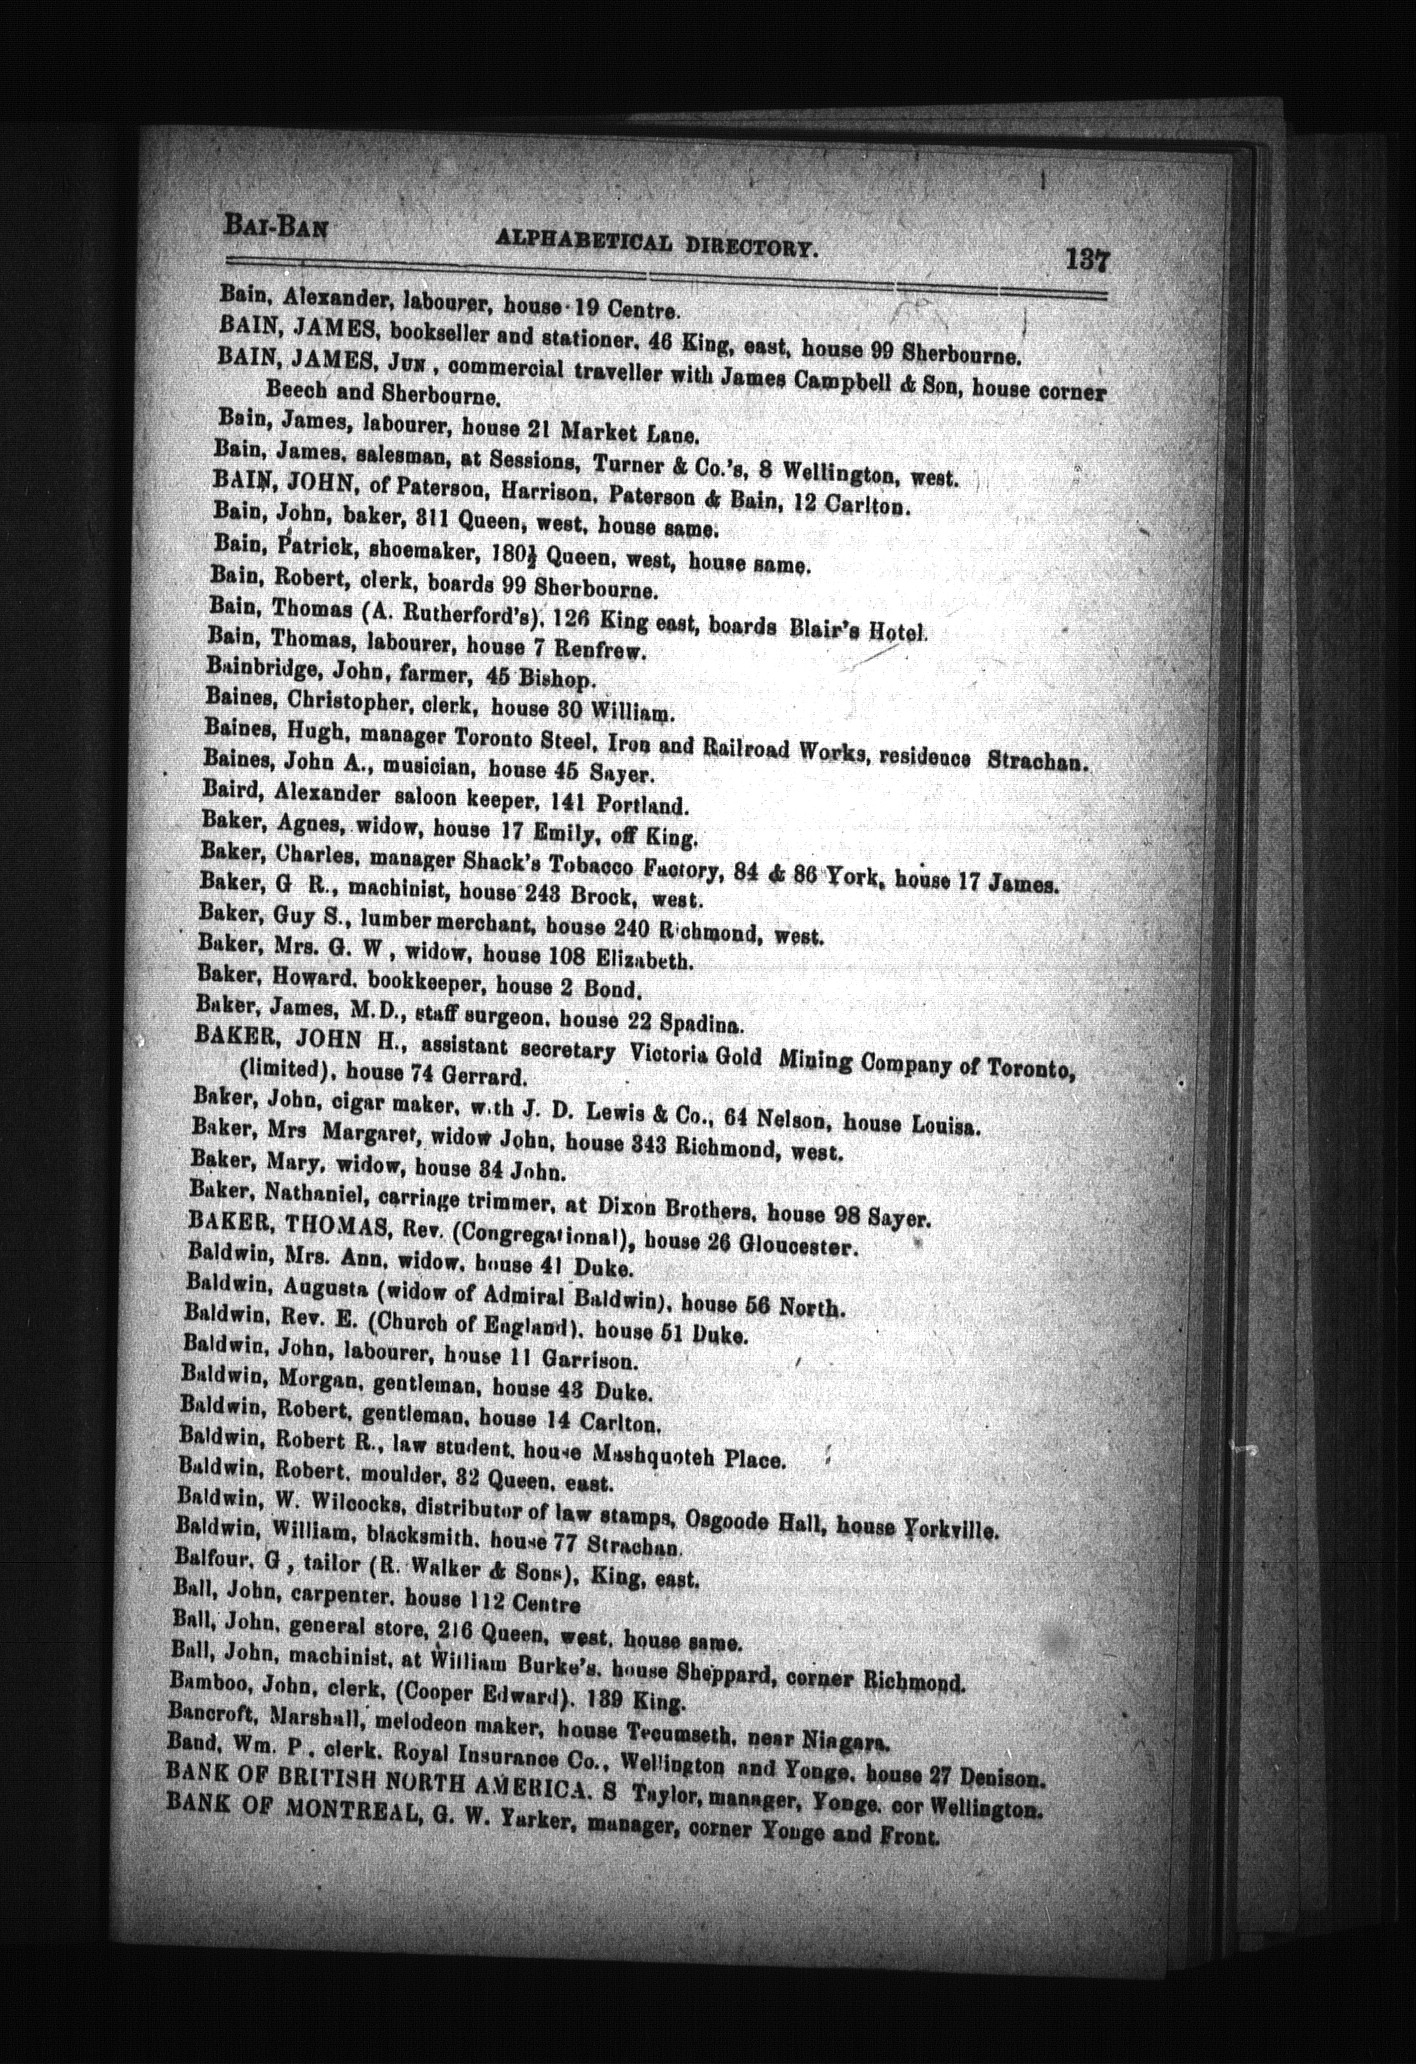 BAI-BAN ALPHABETICAL DIRECTORY. 137
Bain, Alexander, labourer, house 19 Centre.
BAIN, JAMES, bookseller and stationer, 46 King, east, house 99 Sherbourne.
BAIN, JAMES, JUN , commercial traveller with James Campbell & Son, house corner
Beech and Sherbourne.
Bain, James, labourer, house 21 Market Lane.
Bain, James, salesman, at Sessions, Turner & Co.'s, 8 Wellington, west.
BAIN, JOHN, of Paterson, Harrison, Paterson & Bain, 12 Carlton.
Bain, John, baker, 311 Queen, west, house same.
Bain, Patrick, shoemaker, 180½ Queen, west, house same.
Bain, Robert, clerk, boards 99 Sherbourne.
Bain, Thomas (A. Rutherford's), 126 King east, boards Blair's Hotel.
Bain, Thomas, labourer, house 7 Renfrew.
Bainbridge, John, farmer, 45 Bishop.
Baines, Christopher, clerk, house 30 William.
Baines, Hugh, manager Toronto Steel, Iron and Railroad Works, residence Strachan.
Baines, John A., musician, house 45 Sayer.
Baird, Alexander saloon keeper, 141 Portland.
Baker, Agnes, widow, house 17 Emily, off King.
Baker, Charles, manager Shack's Tobacco Factory, 84 & 86 York, house 17 James.
Baker, G R., machinist, house 243 Brock, west.
Baker, Guy S., lumber merchant, house 240 Richmond, west.
Baker, Mrs. G. W , widow, house 108 Elizabeth.
Baker, Howard, bookkeeper, house 2 Bond.
Baker, James, M.D., staff surgeon, house 22 Spadina.
BAKER, JOHN H., assistant secretary Victoria Gold Mining Company of Toronto,
(limited), house 74 Gerrard.
Baker, John, cigar maker, with J. D. Lewis & Co., 64 Nelson, house Louisa.
Baker, Mrs Margaret, widow John, house 343 Richmond, west.
Baker, Mary, widow, house 34 John.
Baker, Nathaniel, carriage trimmer, at Dixon Brothers, house 98 Sayer.
BAKER, THOMAS, Rev. (Congregational), house 26 Gloucester.
Baldwin, Mrs. Ann, widow, house 41 Duke.
Baldwin, Augusta (widow of Admiral Baldwin), house 56 North.
Baldwin, Rev. E. (Church of England), house 51 Duke.
Baldwin, John, labourer, house 11 Garrison.
Baldwin, Morgan, gentleman, house 43 Duke.
Baldwin, Robert, gentleman, house 14 Carlton.
Baldwin, Robert R., law student, house Mashquoteh Place.
Baldwin, Robert, moulder, 32 Queen, east.
Baldwin, W. Wilcocks, distributor of law stamps, Osgoode Hall, house Yorkville.
Baldwin, William, blacksmith, house 77 Strachan.
Balfour, G , tailor (R. Walker & Sons), King, east.
Ball, John, carpenter, house 112 Centre
Ball, John, general store, 216 Queen, west, house same.
Ball, John, machinist, at William Burke's, house Sheppard, corner Richmond.
Bamboo, John, clerk, (Cooper Edward), 139 King.
Bancroft, Marshall, melodeon maker, house Tecumseth, near Niagara.
Band, Wm. P , clerk, Royal Insurance Co., Wellington and Yonge, house 27 Denison.
BANK OF BRITISH NORTH AMERICA. S Taylor, manager, Yonge, cor Wellington.
BANK OF MONTREAL, G. W. Yarker, manager, corner Yonge and Front.